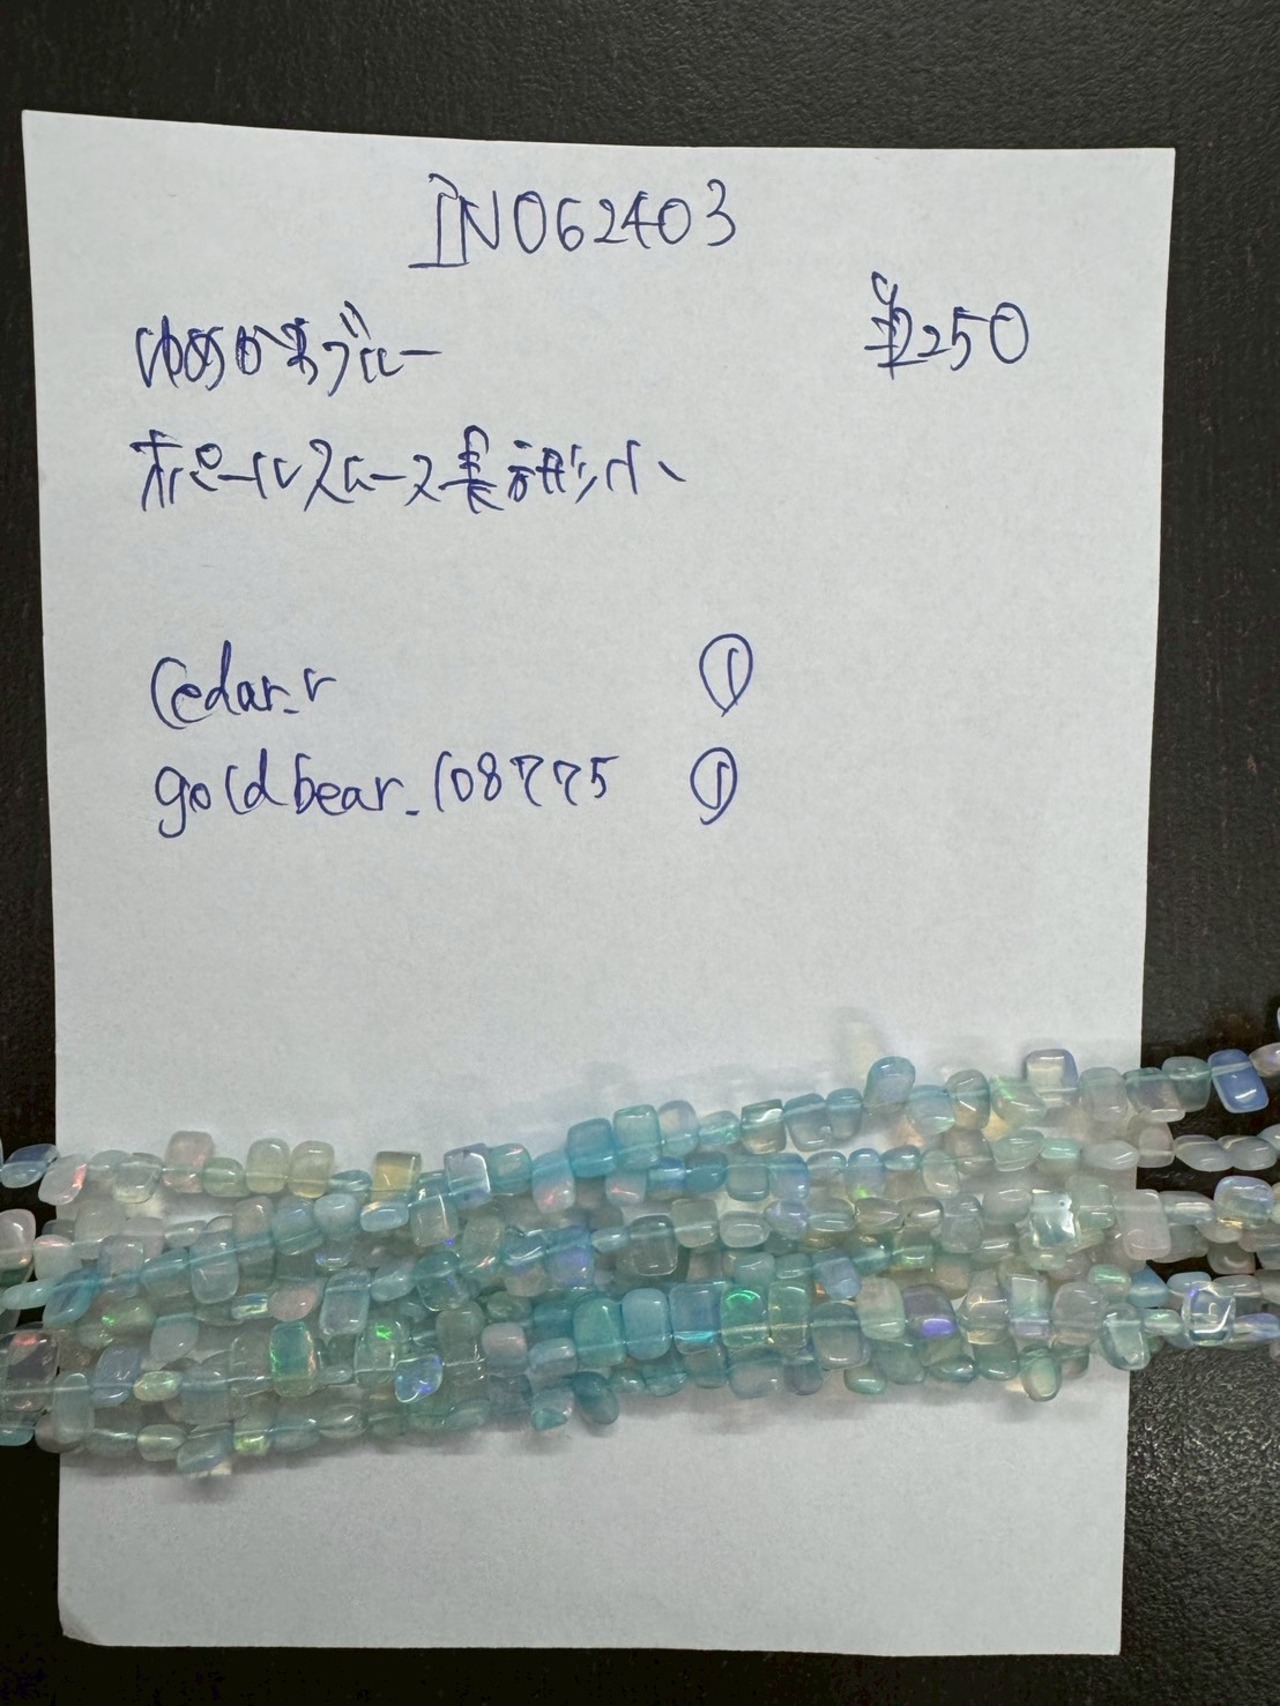 IN062403
ゆめかわブルー ¥2250
オパールスレース長方形小
cedar.r ①
goldbear.108775 ①